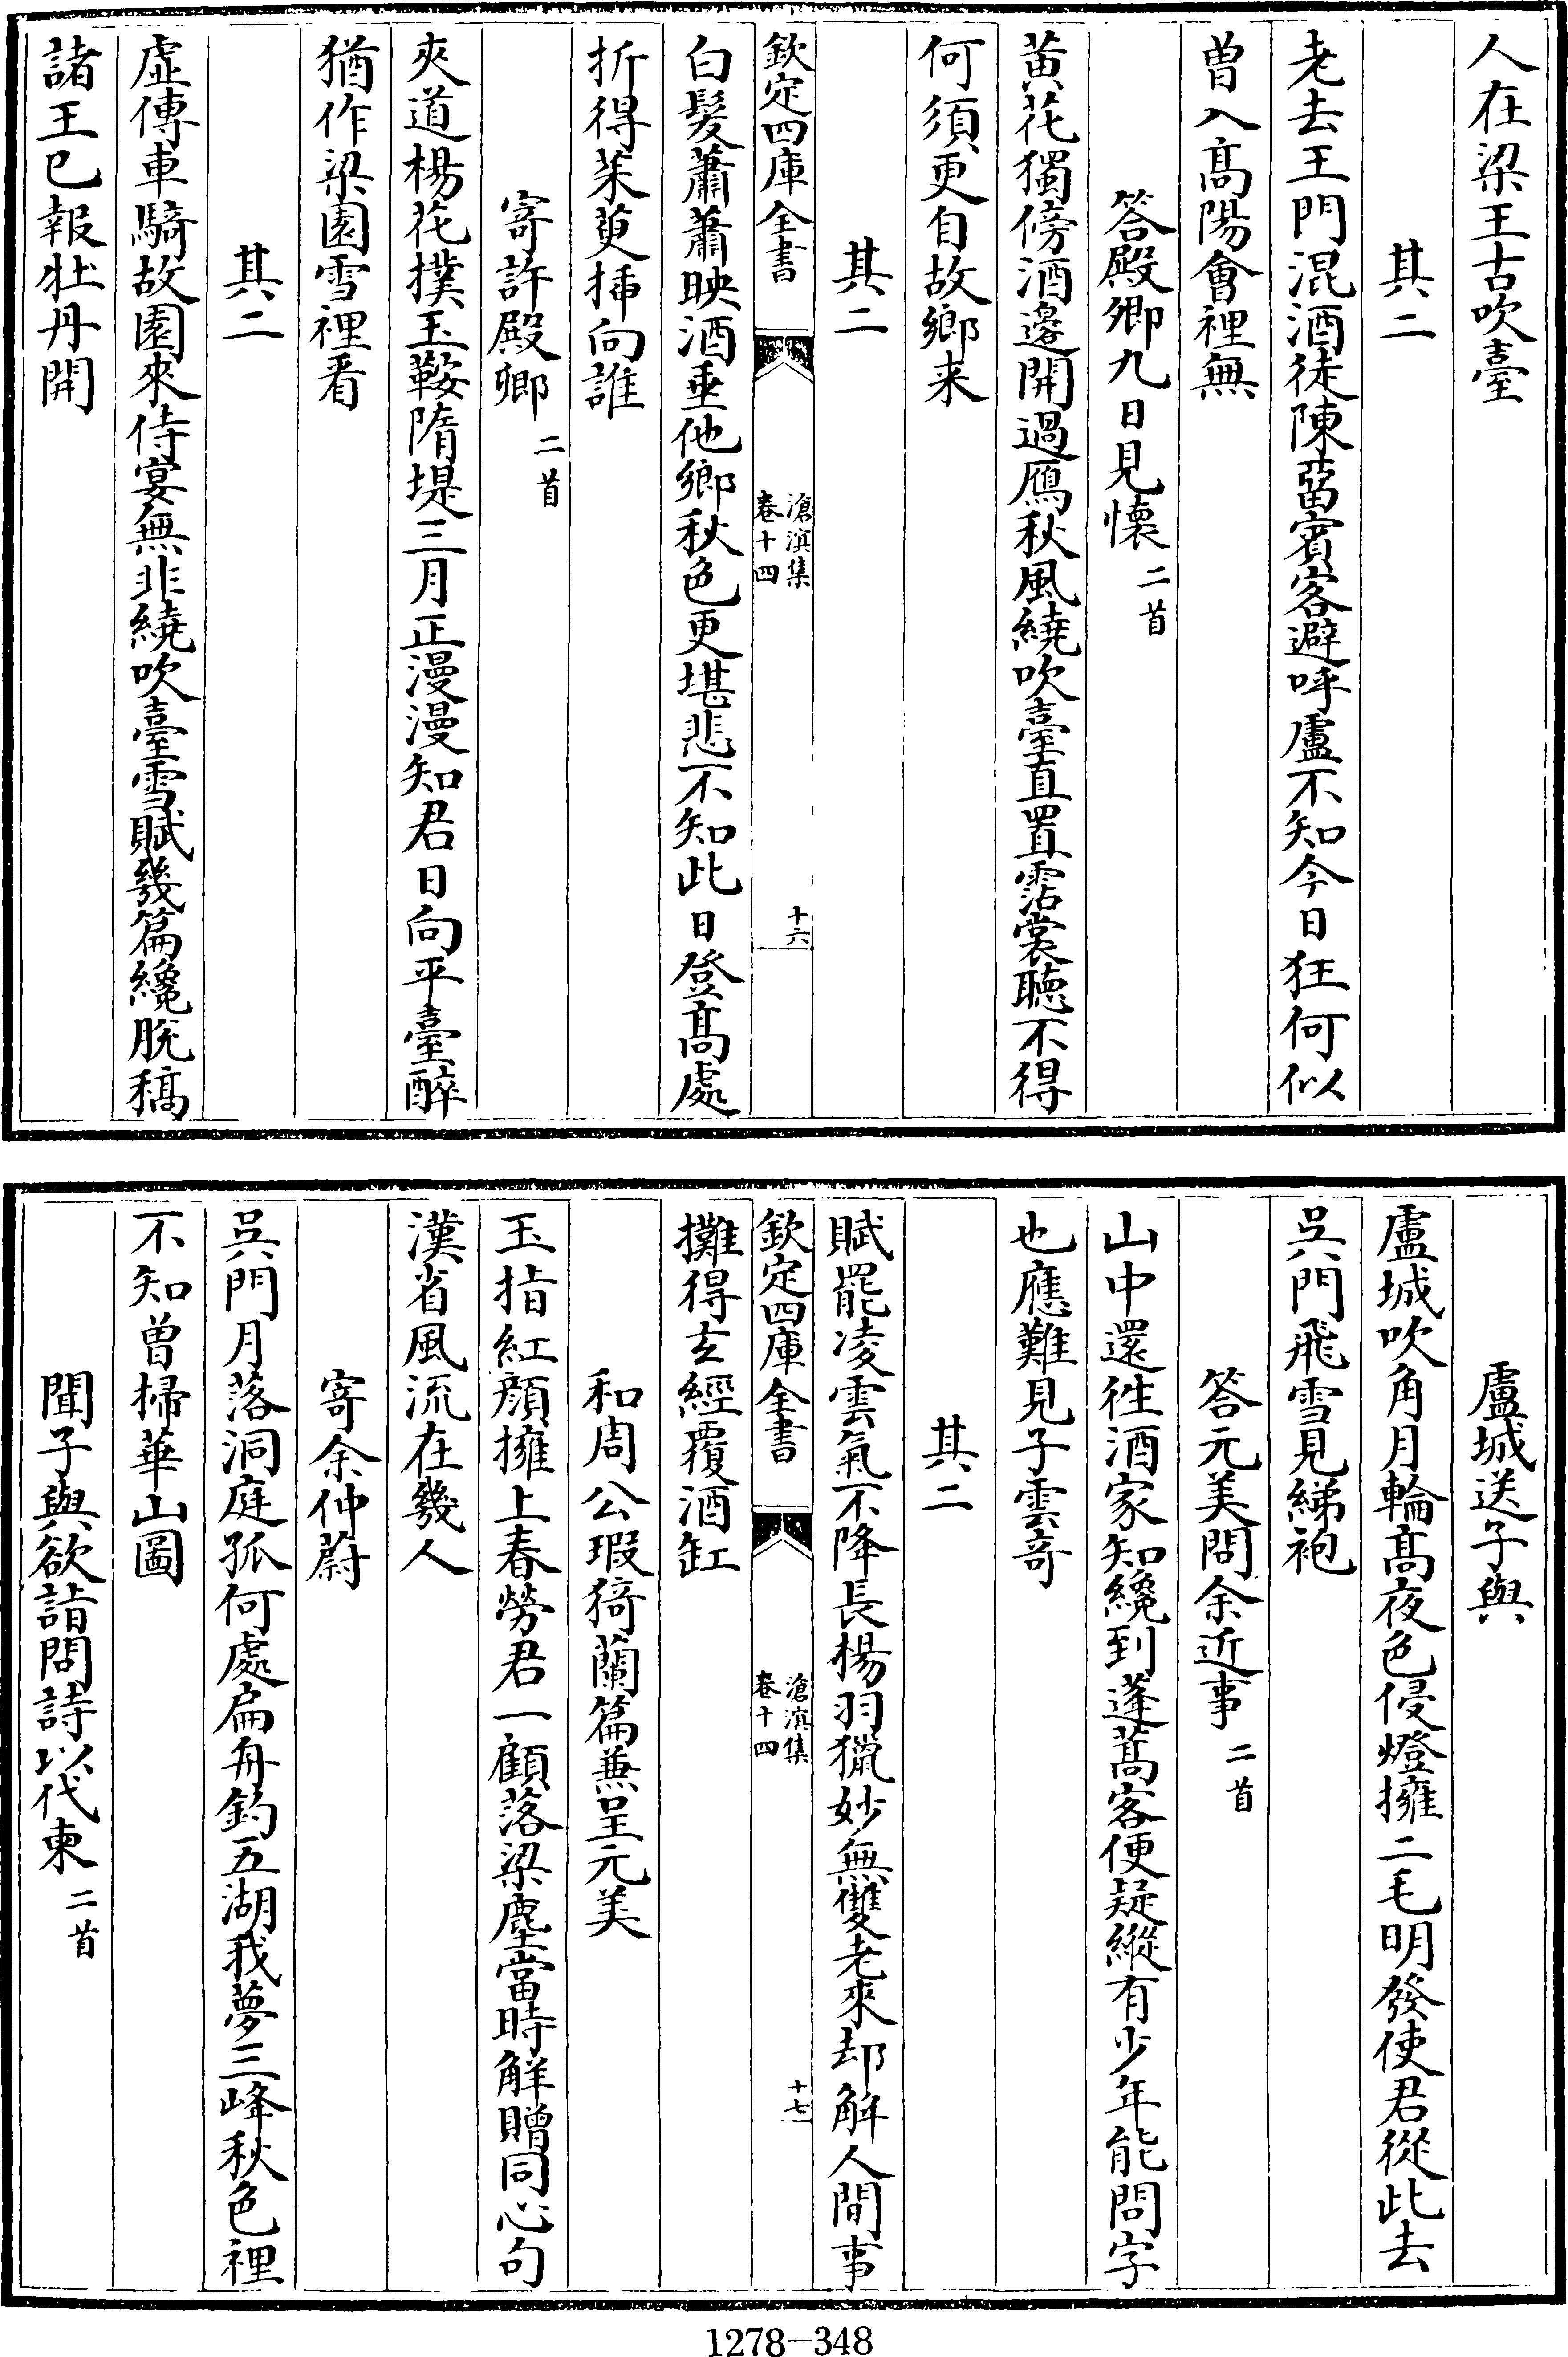 人在梁王古吹臺
其二
老去王門混酒徒陳留賓客避呼盧不知今日狂何似
曽入髙陽會裡無
答殿卿九日見懐二首
黄花獨傍酒邊開過鴈秋風繞吹臺直置霑裳聴不得
何須更自故鄉来
其二
欽定四庫全書
滄溟集
卷十四
十六
白髮蕭蕭映酒垂他鄉秋色更堪悲不知此日登髙處
折得茱萸揷向誰
寄許殿卿二首
夾道楊花撲玉鞍隋堤三月正漫漫知君日向平臺醉
猶作梁園雪裡看
其二
虛傳車騎故園來侍宴無非繞吹臺雪賦幾篇纔脫稿
諸王已報牡丹開
盧城送子與
盧城吹角月輪髙夜色侵燈擁二毛明發使君從此去
吳門飛雪見綈袍
答元美問余近事二首
山中還徃酒家知纔到蓬蒿客便疑縱有少年能問字
也應難見子雲竒
其二
賦罷凌雲氣不降長楊羽獵妙無雙老來却解人間事
欽定四庫全書
滄溟集
卷十四
十七
攤得玄經覆酒缸
和周公瑕猗蘭篇兼呈元美
玉指紅顔擁上春勞君一顧落梁塵當時解贈同心句
漢省風流在幾人
寄余仲蔚
吳門月落洞庭孤何處扁舟釣五湖我夢三峰秋色裡
不知曽掃華山圖
聞子與欲詣問詩以代柬二首
1278-348